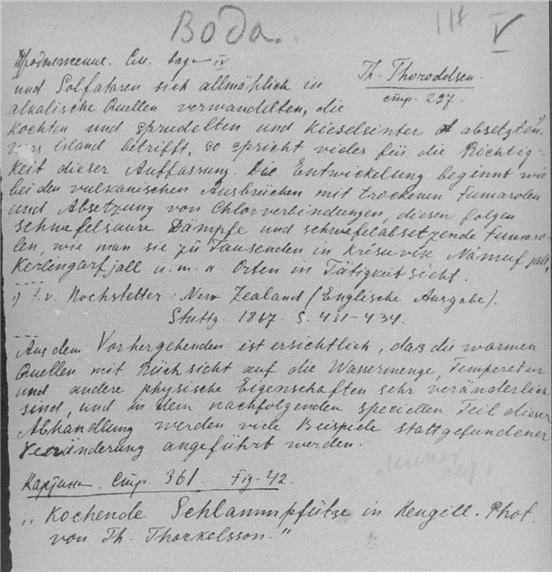 Вода.
114 V
Продолжение. См. вода IV
Th. Thoroddsen.
стр. 297.
und Solfataren sich allmählich in
alkalische Quellen verwandelten, die
kochten und sprudelten und Kieselsinter absetzten.¹⁾
Was Island betrifft, so spricht vieles für die Richtig-
keit dieser Auffassung. Die Entwickelung beginnt wie
bei den vulkanischen Ausbrüchen mit trockenen Fumarolen
und Absetzung von Chlorverbindungen, diesen folgen
schwefelsaure Dämpfe und schwefelabsetzende Fumaro-
len, wie man sie zu Tausenden in Krísuvík Námufjall
Kerlingarfjöll u. m. a. Orten in Tätigkeit sieht.
1) F. v. Hochstetter: New Zealand (Englische Ausgabe).
Stuttg. 1867. S. 431-434.
Aus dem Vorhergehenden ist ersichtlich, dass die warmen
Quellen mit Rücksicht auf die Wassermenge, Temperatur
und andere physische Eigenschaften sehr veränderlich
sind, und in dem nachfolgenden speciellen Teil dieser
Abhandlung werden viele Beispiele stattgefundener
Veränderung angeführt werden.
Картина. Стр. 361. Fig. 42.
„Kochende Schlammpfütze in Hengill. Phot.
von Th. Thorkelsson."